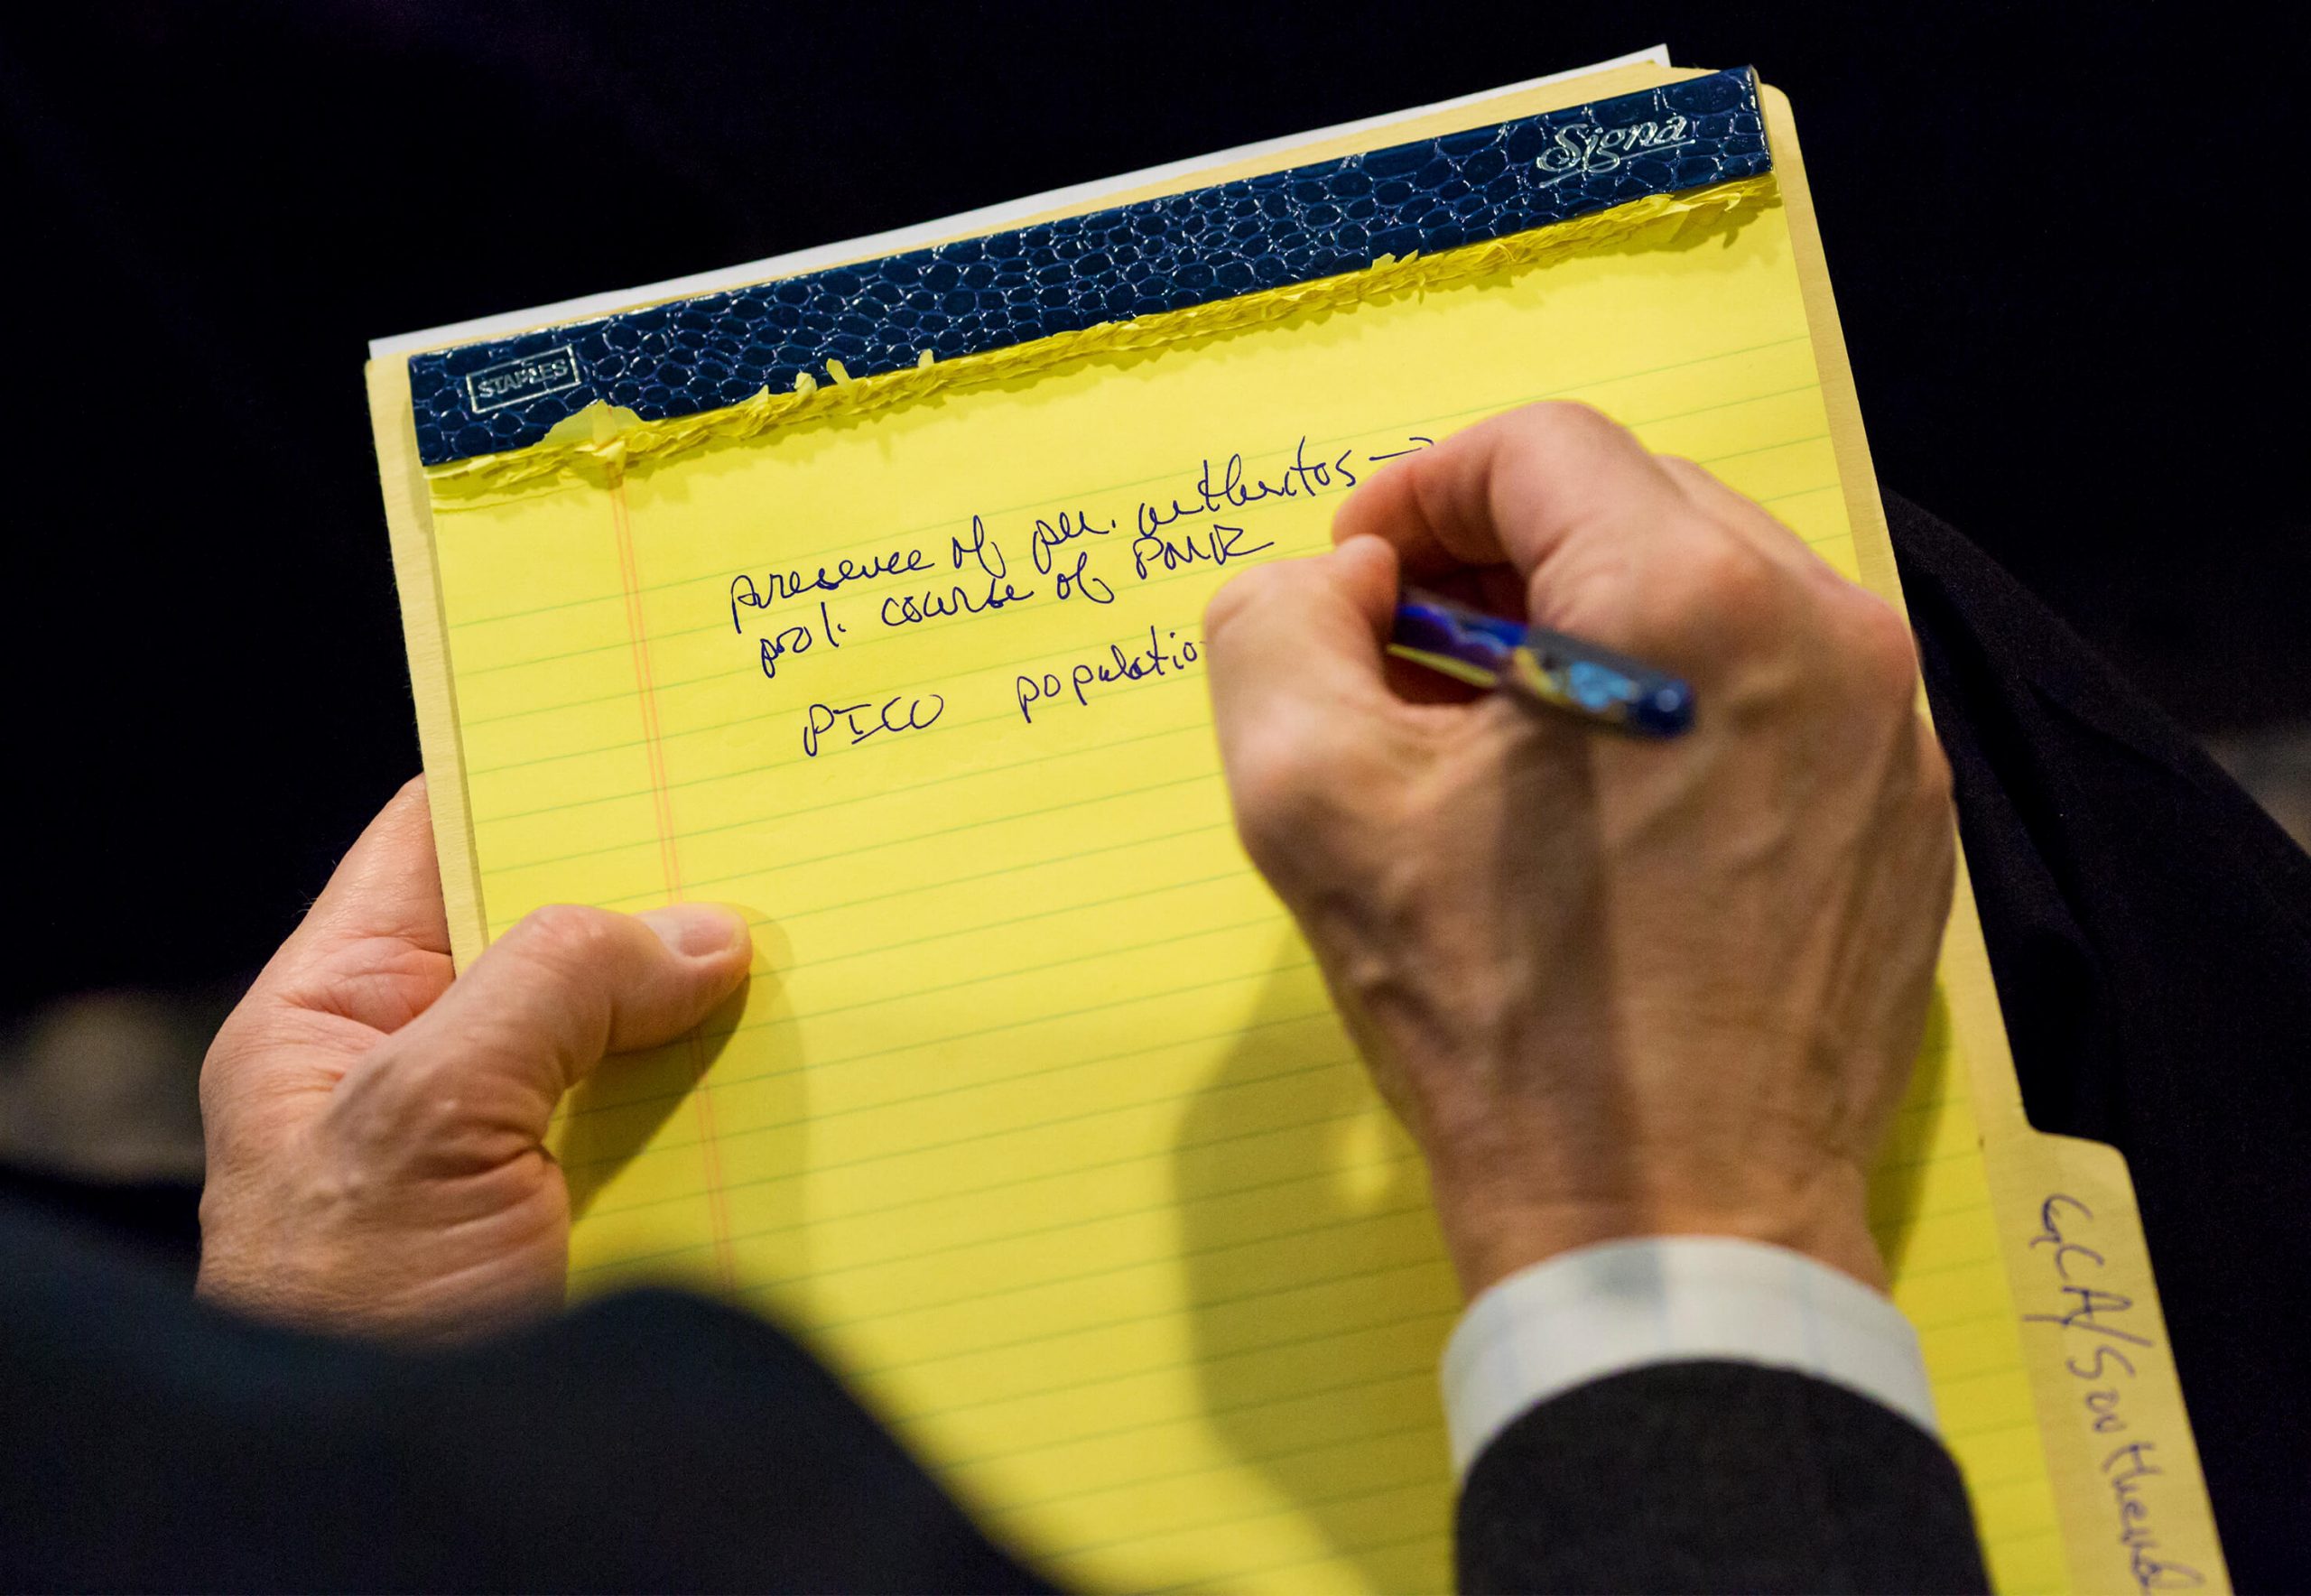 Signa
STAPLES
presence of per. arthritos →
pol. course of PMR
PICO populatio
GCA/Southend